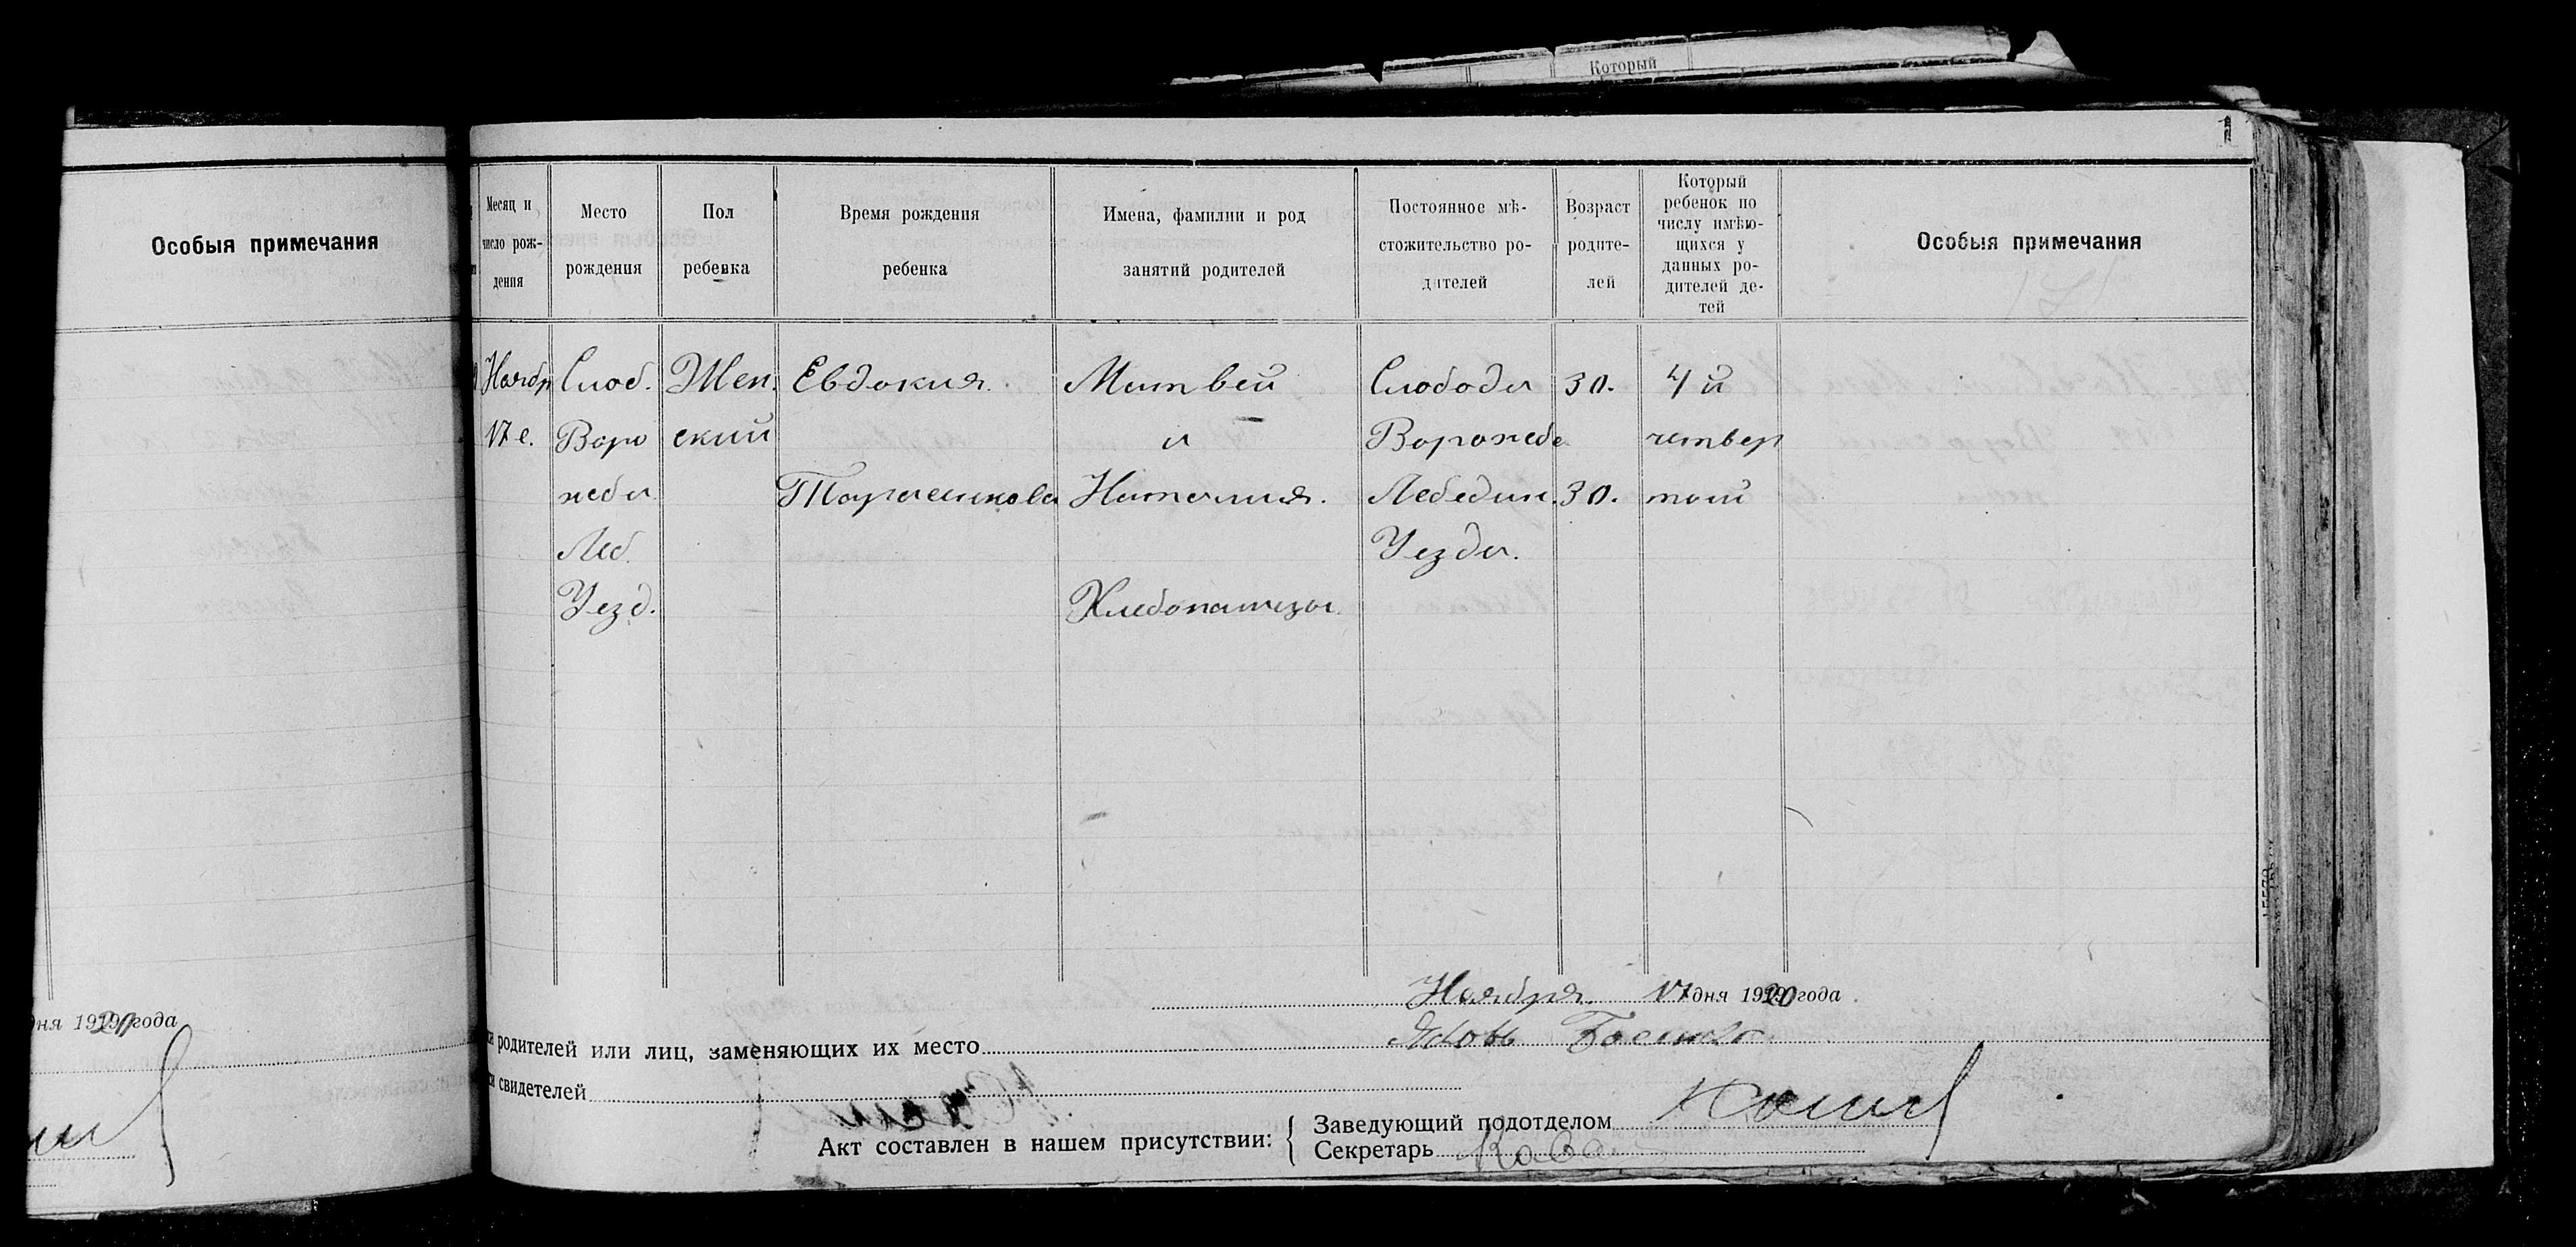 Который
Особыя примечания
Месяц и
число рож-
дения
Место
рождения
Пол
ребенка
Время рождения
ребенка
Имена, фамилии и род
занятий родителей
Постоянное мѣ-
стожительство ро-
дителей
Возраст
родите-
лей
Который
ребенок по
числу имѣю-
щихся у
данных ро-
дителей де-
тей
Особыя примечания
Ноябр
17 е.
Слоб.
Воро
жеба
Леб.
Уезд.
Жен.
ский
Евдокия.
Матвей
и
Наталия.
Хлебопашцы.
Слобода
Ворожеба
Лебедин.
Уезда.
30.
30.
4й
четвер
тай
Ноября. 17 дня 1920 года
дня 1920 года
родителей или лиц, заменяющих их место Яковъ
свидетелей
Акт составлен в нашем присутствии:
Заведующий подотделом
Секретарь